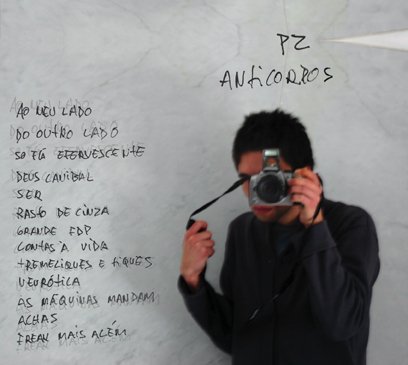 PZ
ANTICORPOS
AO MEU LADO
DO OUTRO LADO
SOFIA EFERVESCENTE
DEUS CANIBAL
SER
RASTO DE CINZA
GRANDE FDP
CONTAS À VIDA
TREMELIQUES E TIQUES
NEURÓTICA
AS MÁQUINAS MANDAM
ACHAS
FREAK MAIS ALÉM